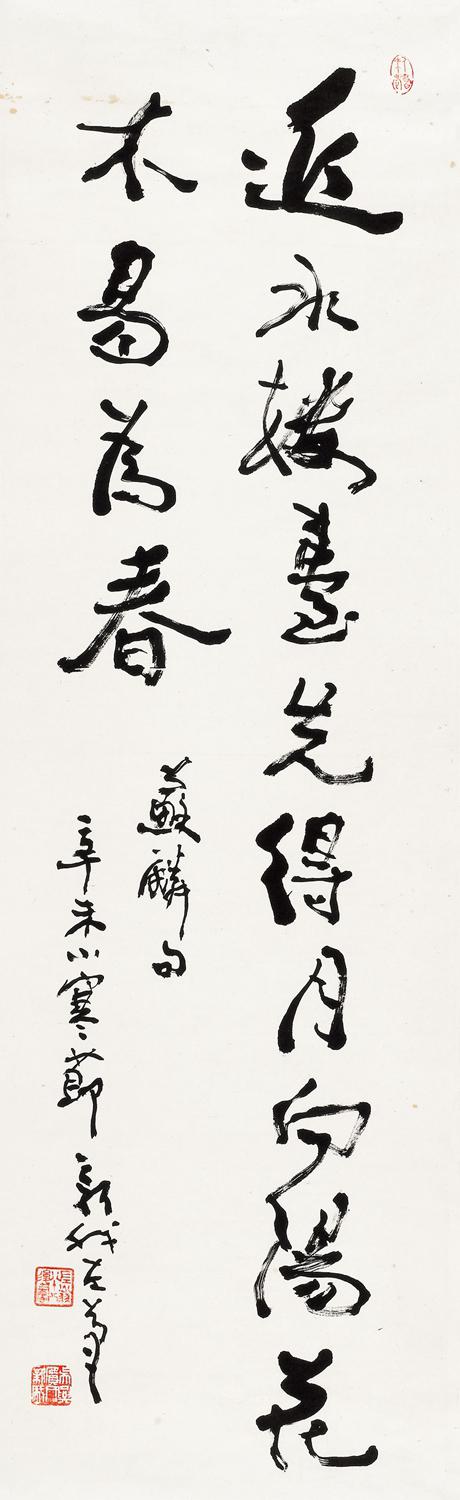 近水樓臺先得月向陽花
木易為春
蘇麟句
辛未小寒節 新我左筆